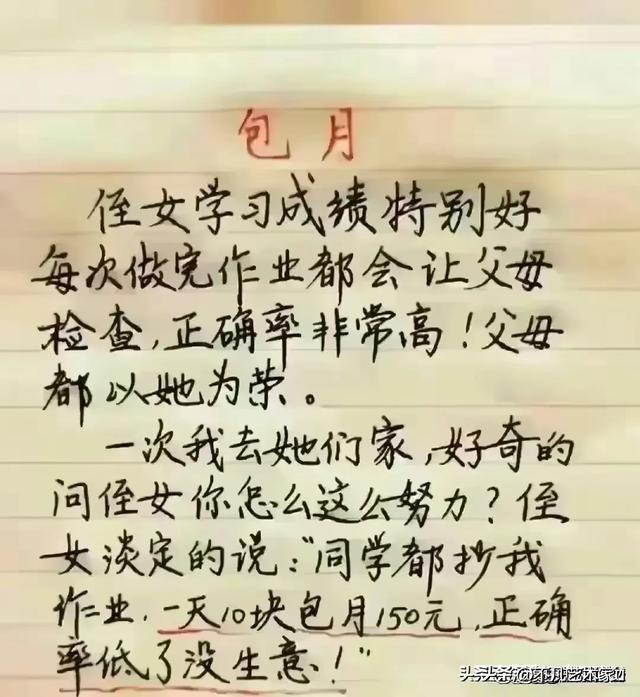 包月
侄女学习成绩特别好
每次做完作业都会让父母
检查,正确率非常高!父母
都以她为荣。
一次我去她们家,好奇的
问侄女你怎么这么努力?侄
女淡定的说:"同学都抄我
作业.一天10块包月150元,正确
率低了没生意!"